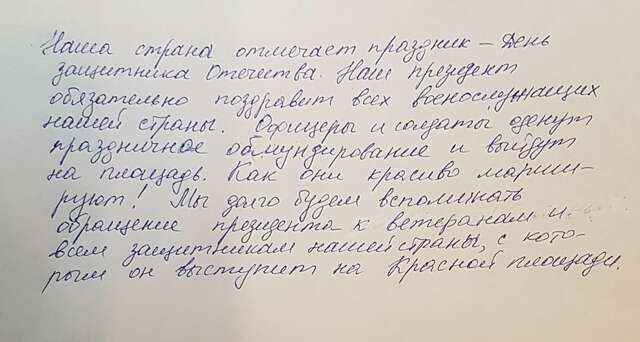 Наша страна отмечает праздник – День
защитника Отечества. Наш президент
обязательно поздравит всех военослужащих
нашей страны. Офицеры и солдаты оденут
праздничное обмундирование и выйдут
на площадь. Как они красиво марши-
руют! Мы долго будем вспоминать
обращение президента к ветеранам и
всем защитникам нашей страны, с кото-
рым он выступит на Красной площади.